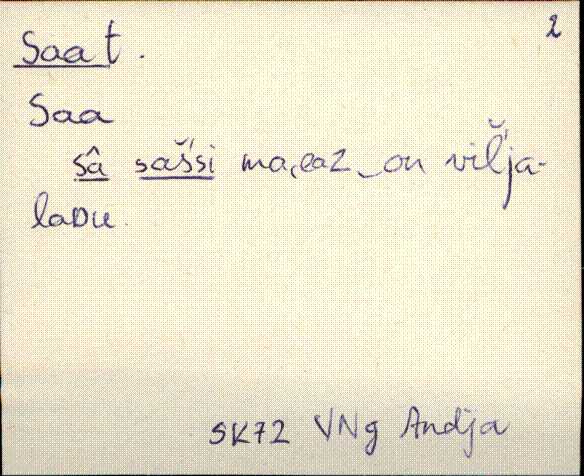 2
Saat.
Saa
sâ sašsi ma, eaz on vil̆ja-
laᴅu.
SK72 VNg Andja